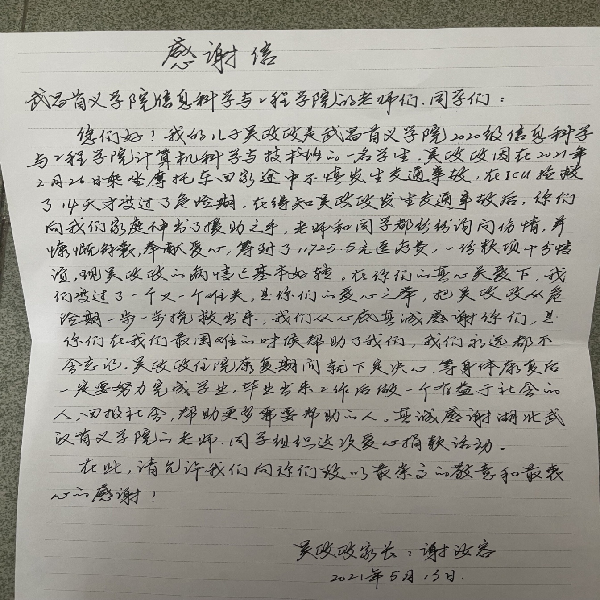 感谢信
武昌首义学院信息科学与工程学院的老师们、同学们:
您们好!我的儿子吴政政是武昌首义学院2020级信息科学
与工程学院计算机科学与技术的一名学生,吴政政因在2021年
2月26日乘坐摩托车回家途中不慎发生交通事故,在ICU抢救
了14天才渡过了危险期,在得知吴政政发生交通事故后,你们
向我们家庭伸出了援助之手,老师和同学都纷纷询问伤情,并
慷慨解囊,奉献爱心,筹到了11725.5元医药费,一份款项十分情
谊,现吴政政的病情已基本好转,在你们的真心关爱下,我
们渡过了一个又一个难关,是你们的爱心之举,把吴政政从危
险期一步一步挽救出来,我们从心底真诚感谢你们,是
你们在我们最困难的时候帮助了我们,我们永远都不
会忘记,吴政政住院康复期间就下定决心,等身体康复后
一定要努力完成学业,毕业出来工作后做一个有益于社会的
人,回报社会,帮助更多需要帮助的人,真诚感谢湖北武
汉首义学院的老师、同学组织这次爱心捐款活动。
在此,请允许我们向你们致以最崇高的敬意和最衷
心的感谢!
吴政政家长:谢政容
2021年5月13日.